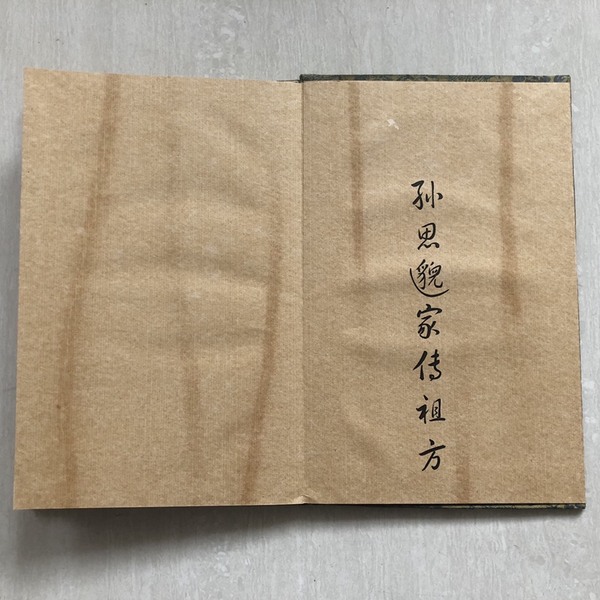 孙思邈家传祖方